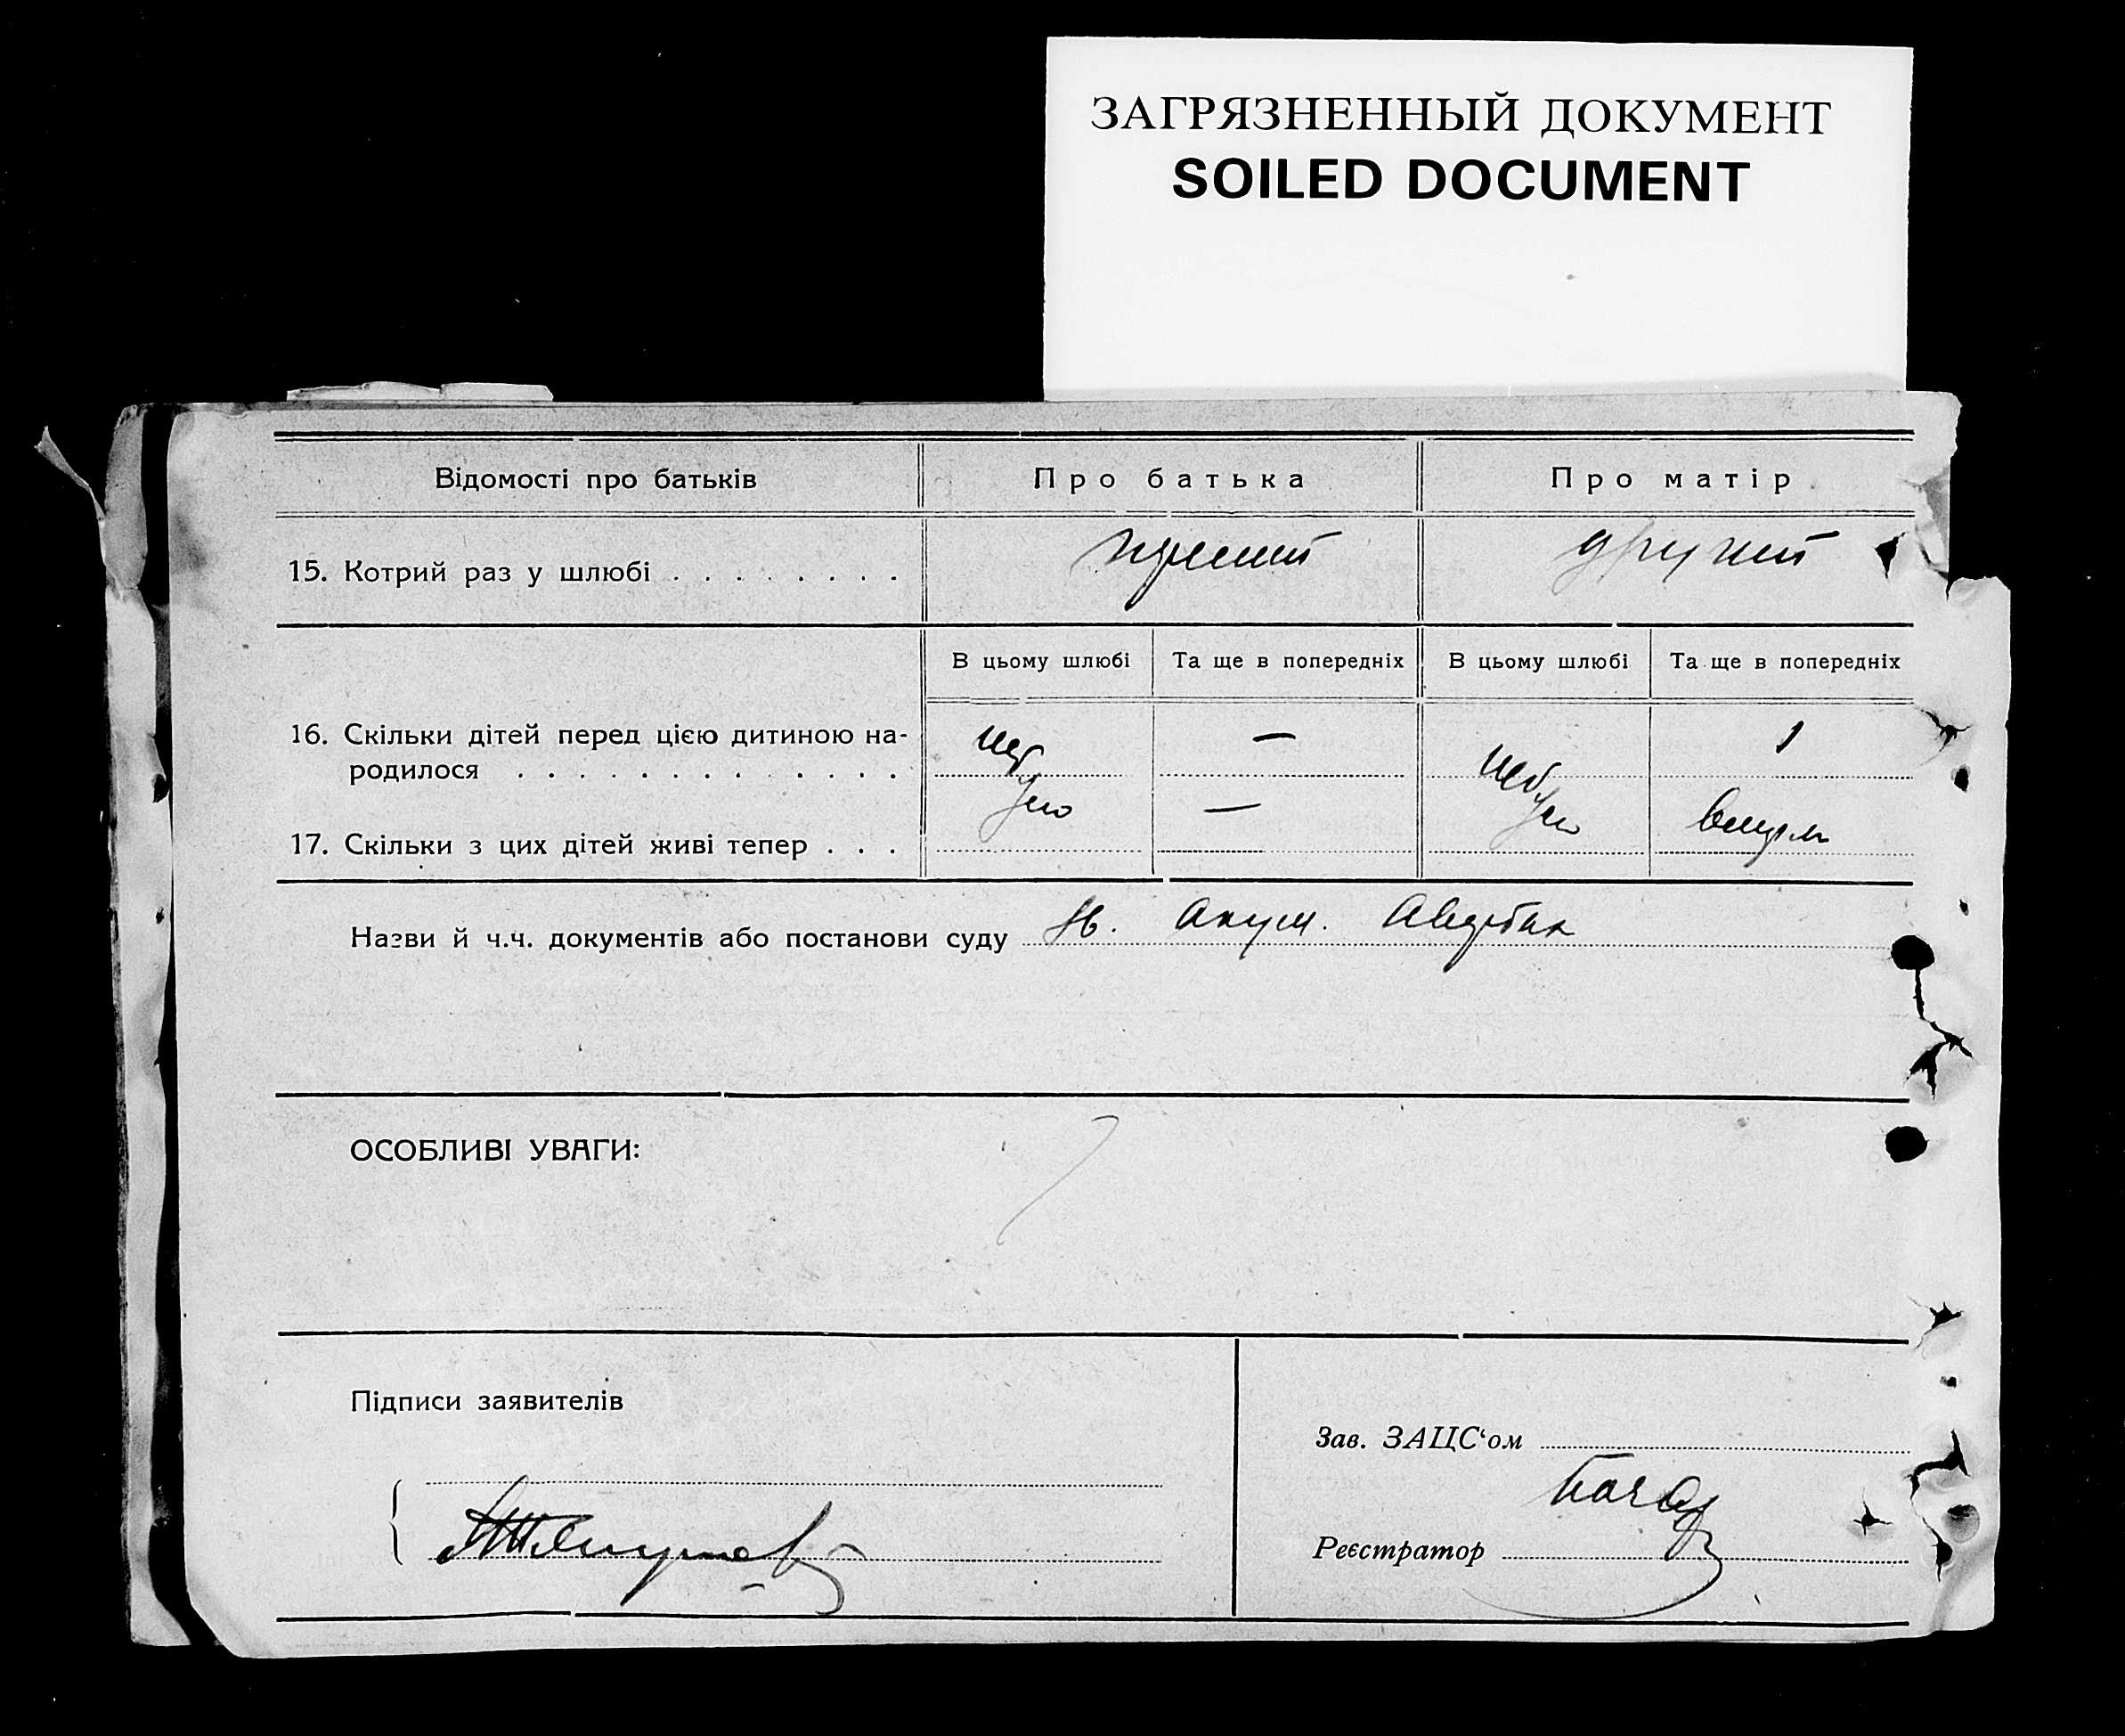 ЗАГРЯЗНЕННЫЙ ДОКУМЕНТ
SOILED DOCUMENT
Відомості про батьків Про батька Про матір
15. Котрий раз у шлюбі . . . . . . . . другий
В цьому шлюбі Та ще в попередніх В цьому шлюбі Та ще в попередніх
16. Скільки дітей перед цією дитиною на-
родилося . . . . . . . . . . . . . не було — не було 1
17. Скільки з цих дітей живі тепер . . . —
Назви й ч.ч. документів або постанови суду Акуш.
ОСОБЛИВІ УВАГИ:
Підписи заявителів
Зав. ЗАЦС‘ом
Реєстратор